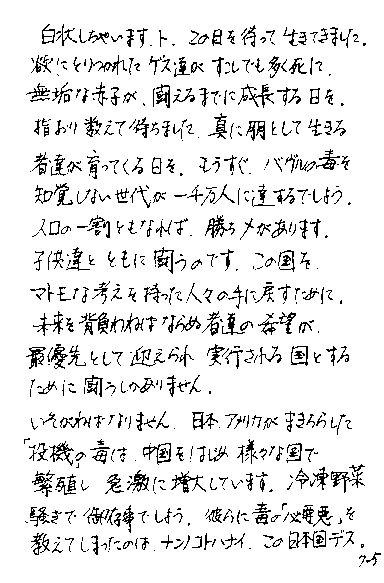 白状しちゃいます、ト、この日を待って生きてきました。
欲にとりつかれたゲス達が すこしでも多く死に、
無垢な赤子が、闘えるまでに成長する日を。
指おり数えて待ちました、真に朋として生きる
者達が育ってくる日を。もうすぐ、バブルの毒を
知覚しない世代が 一千万人に達するでしょう。
人口の一割ともなれば、勝ちメがあります。
子供達とともに闘うのです、この国を、
マトモな考えを持った人々の手に戻すために。
未来を背負わねばならぬ者達の希望が、
最優先として迎えられ 実行される国とする
ために闘うしかありません。
いそがねばなりません、日本、アメリカがまきちらした
「投機」の毒は、中国をはじめ様々な国で
繁殖し 急激に増大しています。冷凍野菜
騒ぎで御存事でしょう。彼らに毒の「必要悪」を
教えてしまったのは、ナンノコトハナイ、この日本国デス。
7-5